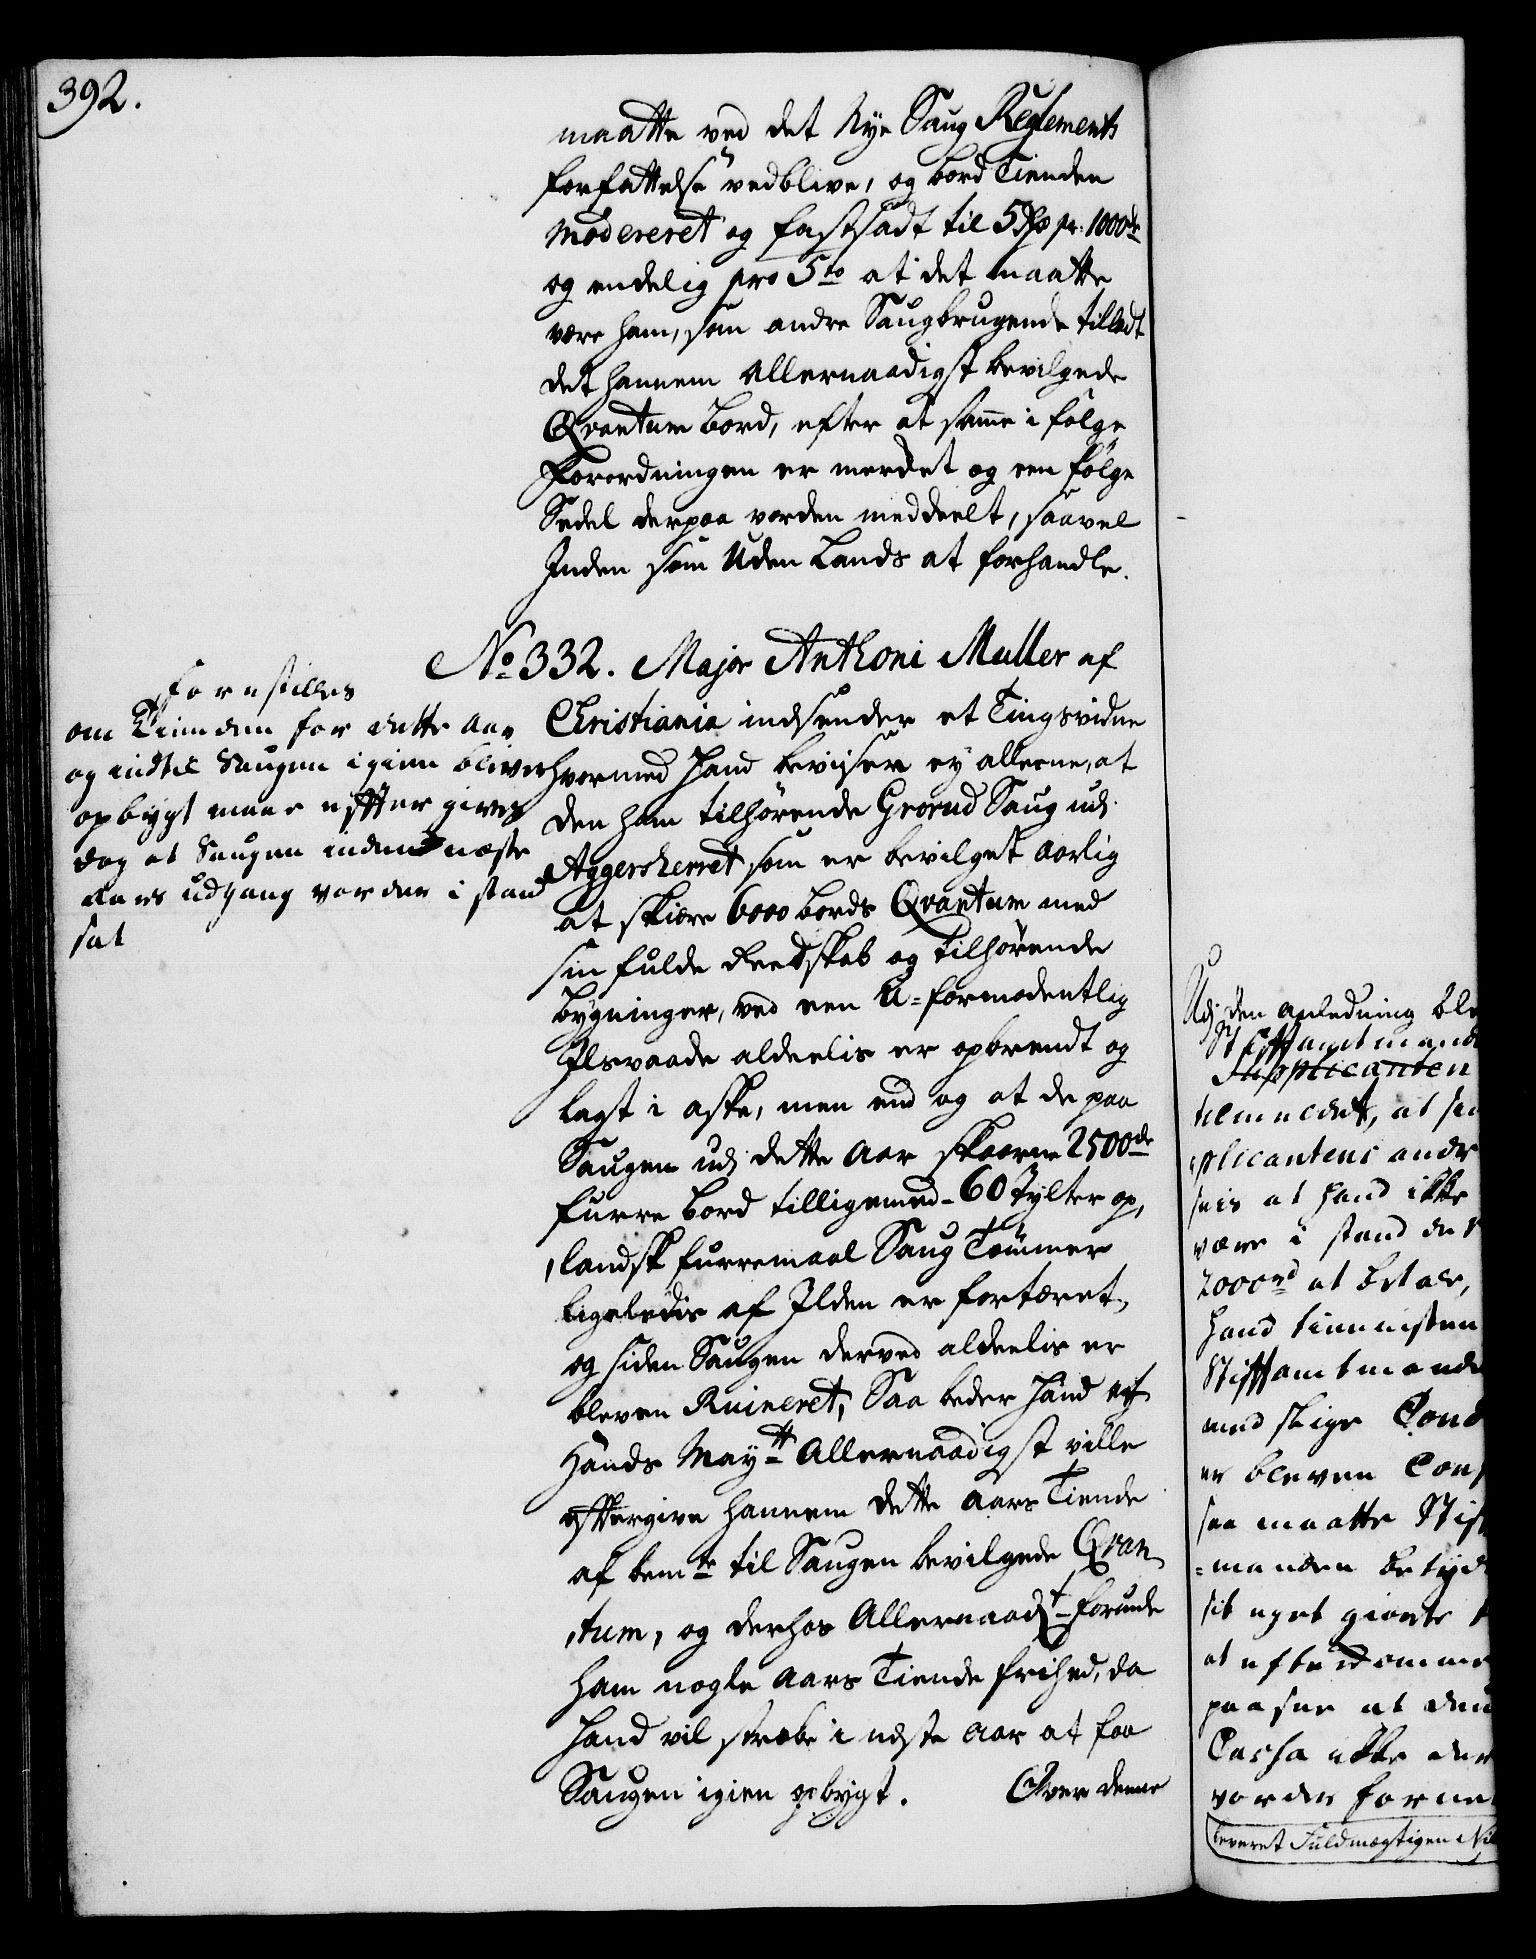 392.
maatte ved det Nye Saug Reglements
forfattelse vedblive, og bord Tienden
modereret og fastsadt til 5 pr. 1000de
og endelig pro 5to at det maatte
være ham, som andre Saugbrugende tilladt
det hannem Allernaadigst bevilgede
Qvantum Bord, efter at samme i følge
Forordningen er merket og een følge
Sedel derpaa vorden meddeelt, saavel
Inden som Uden Lands at forhandle.
No 332. Major Anthoni Muller af
Christiania indsender et Tingsvidne
hvormed hand beviiser ey alleene, at
den ham tilhørende Grorud Saug udj
Aggersherret som er bevilget aarlig
at skiære 6000 bords Qvantum med
sin fulde Reedskab og tilhørende
bygninger, ved een U-formodentlig
Ilsvaade aldeelis er opbrendt og
lagt i aske, men end og at de paa
Saugen udj dette Aar skaarne 2500de
furre bord tilligemed 60 Tylter op,
landsk furremaal Saug Tømmer
ligeledis af Ilden er fortæret,
og siden Saugen derved aldeelis er
bleven Ruineret; Saa beder hand at
Hands Maytt Allernaadigst ville
eftergive hannem dette Aars Tiende
af bemte til Saugen bevilgede Qvan,
tum, og derhos Allernaadt forunde
ham nogle Aars Tiende frihed, da
hand vil stræbe i næste Aar at faa
Saugen igien opbygt. Over denne
forestilles
om Tienden for dette Aar
og indtil Saugen igien bliver
opbygt maae efftergives
dog at Saugen inden næste
Aars udgang vorder i stand
sat
Udj den anledning ble
Stifftamtmand
Supplicanten
tilmeldt, at
plicantens andr
at hand ikke
være i stand det
2000rd at betale,
hand
Stifftamtmand
med slige Cond
er bleven Con
saa maatte Stif
manden betyd
sit eget giorte
at efterkomme
paasee at den
Cassa ikke der
vorder forne
leveret Fuldmægtigen Ni